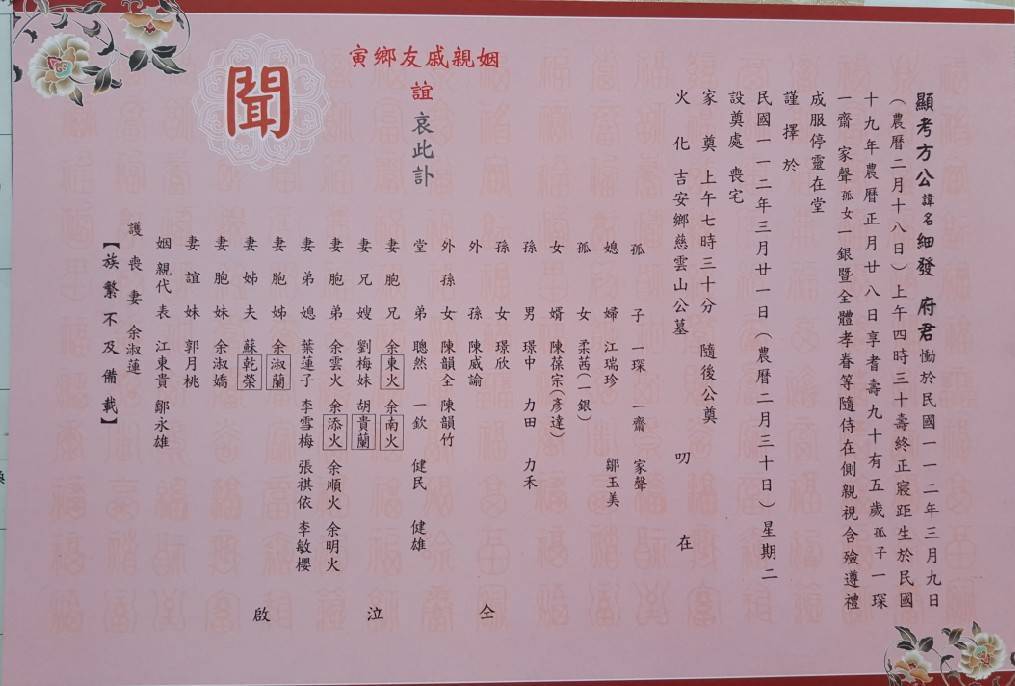 顯考方公諱名細發 府君慟於民國一一二年三月九日
（農曆二月十八日）上午四時三十壽終正寢距生於民國
十九年農曆正月廿八日享耆壽九十有五歲孤子一琛
一齋 家聲孤女一銀暨全體孝眷等隨侍在側親視含殮遵禮
成服停靈在堂
謹擇於
民國一一二年三月廿一日（農曆二月三十日）星期二
設奠處 喪宅
家奠 上午七時三十分 隨後公奠
火化 吉安鄉慈雲山公墓 叨在
姻親戚友鄉寅
誼 哀此訃
聞
孤子 一琛 一齋 家聲
媳婦 江瑞珍 鄒玉美
孤女 柔茜（一銀）
女婿 陳葆宗（彥達）
孫男 璟中 力田 力禾
孫女 璟欣
外孫 陳威諭
外孫女 陳韻全 陳韻竹
堂弟 聰然 一欽 健民 健雄
妻胞兄 余東火 余南火
妻兄嫂 劉梅妹 胡貴蘭
妻胞弟 余雲火 余添火 余順火 余明火
妻弟媳 葉蓮子 李雪梅 張祺依 李敏櫻
妻胞姊 余淑蘭
妻姊夫 蘇乾棠
妻胞妹 余淑嬌
妻誼妹 郭月桃
姻親代表 江東貴 鄒永雄
護喪妻 余淑蓮
仝 泣 啟
【族繁不及備載】